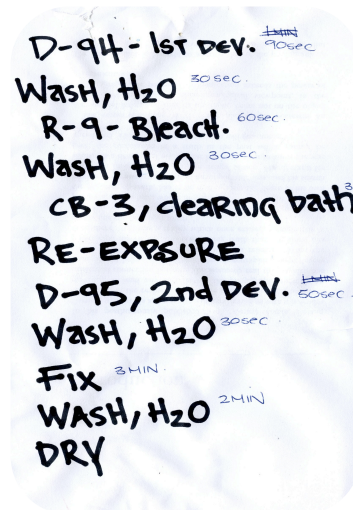 D-94 - 1ST DEV. 1MIN 90sec
WasH, H2O 30sec.
R-9 - BleacH. 60sec.
WasH, H2O 30sec.
CB-3, cleaRing bath 3
RE-EXPSURE
D-95, 2nd DEV. 1MIN 50sec.
WasH, H2O 30sec
Fix 3MIN.
WASH, H2O 2MIN
DRY